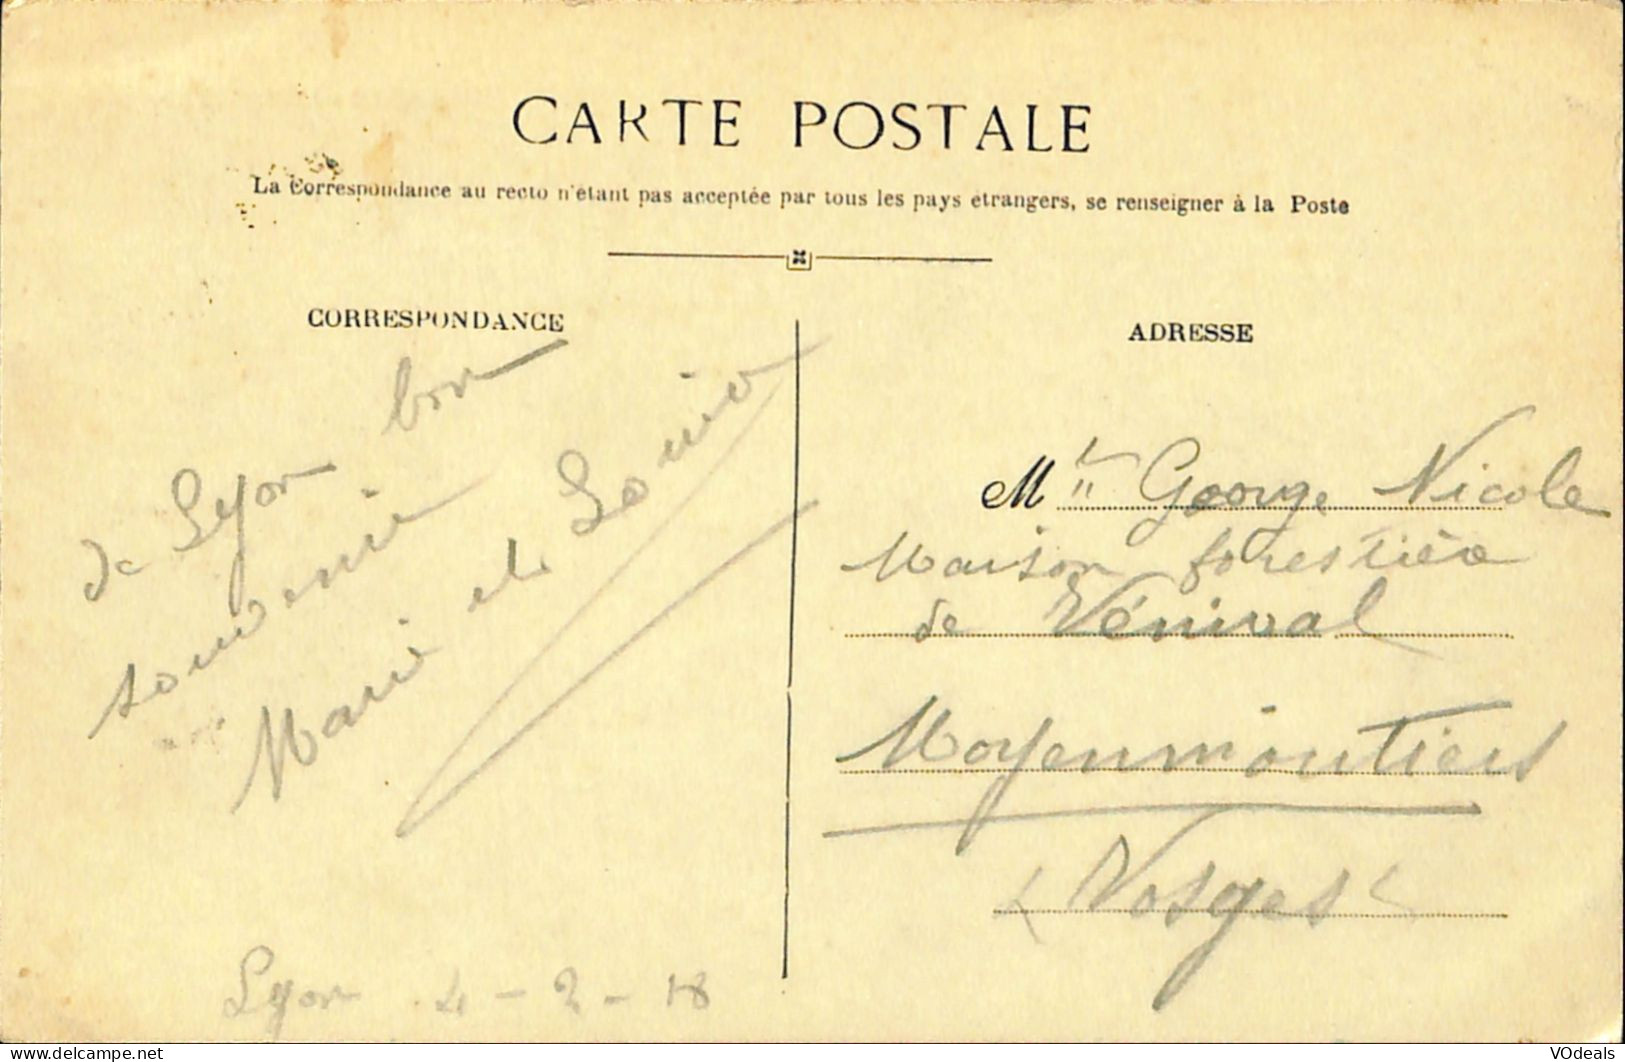 CARTE POSTALE
La Correspondance au recto n'étant pas acceptée par tous les pays étrangers, se renseigner à la Poste
CORRESPONDANCE
de Lyon bon
souvenir
Marie et Louise
Lyon 4-2-18
ADRESSE
Mlle George Nicole
Maison forestière
de Vénival
Moyenmoutiers
(Vosges)
www.delcampe.net
VOdeals